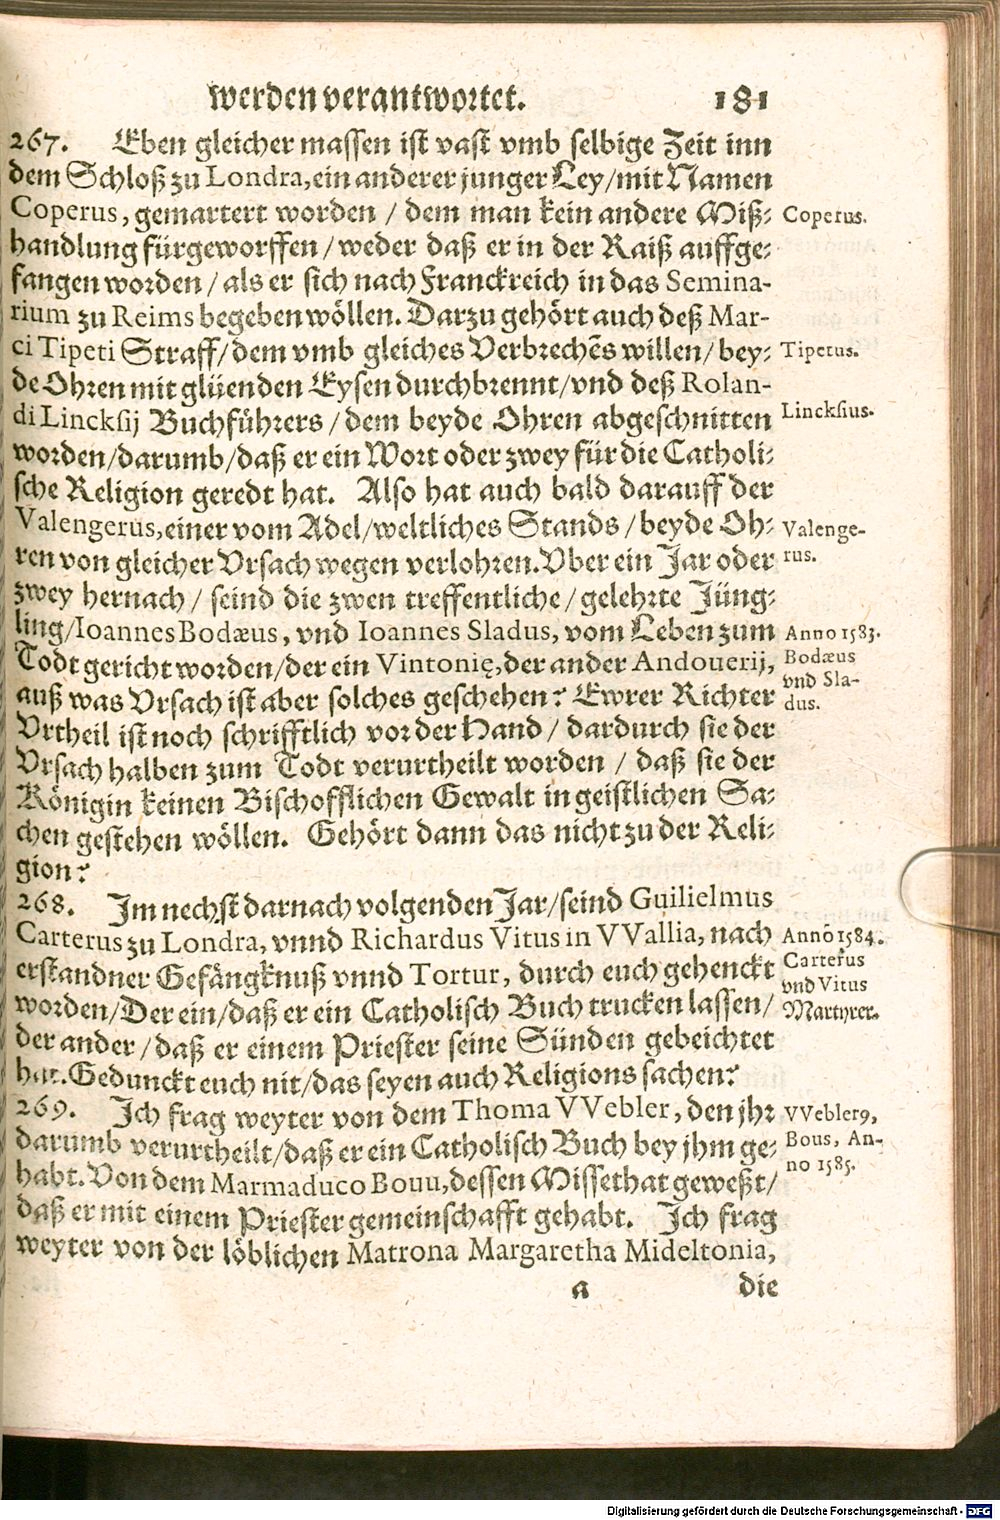 werden verantwortet. 181
267. Eben gleicher massen ist vast vmb selbige Zeit inn
dem Schloß zu Londra, ein anderer junger Ley/mit Namen
Coperus, gemartert worden / dem man kein andere Miß-
handlung fürgeworffen / weder daß er in der Raiß auffge-
fangen worden / als er sich nach Franckreich in das Semina-
rium zu Reims begeben wöllen. Darzu gehört auch deß Mar-
ci Tipeti Straff/dem vmb gleiches Verbrechēs willen/bey-
de Ohren mit glüenden Eysen durchbrennt/vnd deß Rolan-
di Lincksij Buchführers / dem beyde Ohren abgeschnitten
worden/darumb/daß er ein Wort oder zwey für die Catholi-
sche Religion geredt hat. Also hat auch bald darauff der
Valengerus, einer vom Adel/weltliches Stands / beyde Oh-
ren von gleicher Vrsach wegen verlohren. Vber ein Jar oder
zwey hernach / seind die zwen treffentliche / gelehrte Jüng-
ling/Ioannes Bodæus, vnd Ioannes Sladus, vom Leben zum
Todt gericht worden/der ein Vintonię, der ander Andouerij,
auß was Vrsach ist aber solches geschehen? Ewrer Richter
Vrtheil ist noch schrifftlich vor der Hand / dardurch sie der
Vrsach halben zum Todt verurtheilt worden / daß sie der
Königin keinen Bischofflichen Gewalt in geistlichen Sa-
chen gestehen wöllen. Gehört dann das nicht zu der Reli-
gion?
268. Im nechst darnach volgenden Jar/seind Guilielmus
Carterus zu Londra, vnnd Richardus Vitus in VVallia, nach
erstandner Gefängknuß vnnd Tortur, durch euch gehenckt
worden/Der ein/daß er ein Catholisch Buch trucken lassen/
der ander / daß er einem Priester seine Sünden gebeichtet
hat. Gedunckt euch nit/das seyen auch Religions sachen?
269. Ich frag weyter von dem Thoma VVebler, den jhr
darumb verurtheilt/daß er ein Catholisch Buch bey jhm ge-
habt. Von dem Marmaduco Bouu, dessen Missethat geweßt/
daß er mit einem Priester gemeinschafft gehabt. Ich frag
weyter von der löblichen Matrona Margaretha Mideltonia,
a die
Coperus.
Tipetus.
Lincksius.
Valenge-
rus.
Anno 1583.
Bodæus
vnd Sla-
dus.
Anno 1584.
Carterus
vnd Vitus
Martyrer.
VVebler9,
Bous, An-
no 1585.
Digitalisierung gefördert durch die Deutsche Forschungsgemeinschaft - DFG